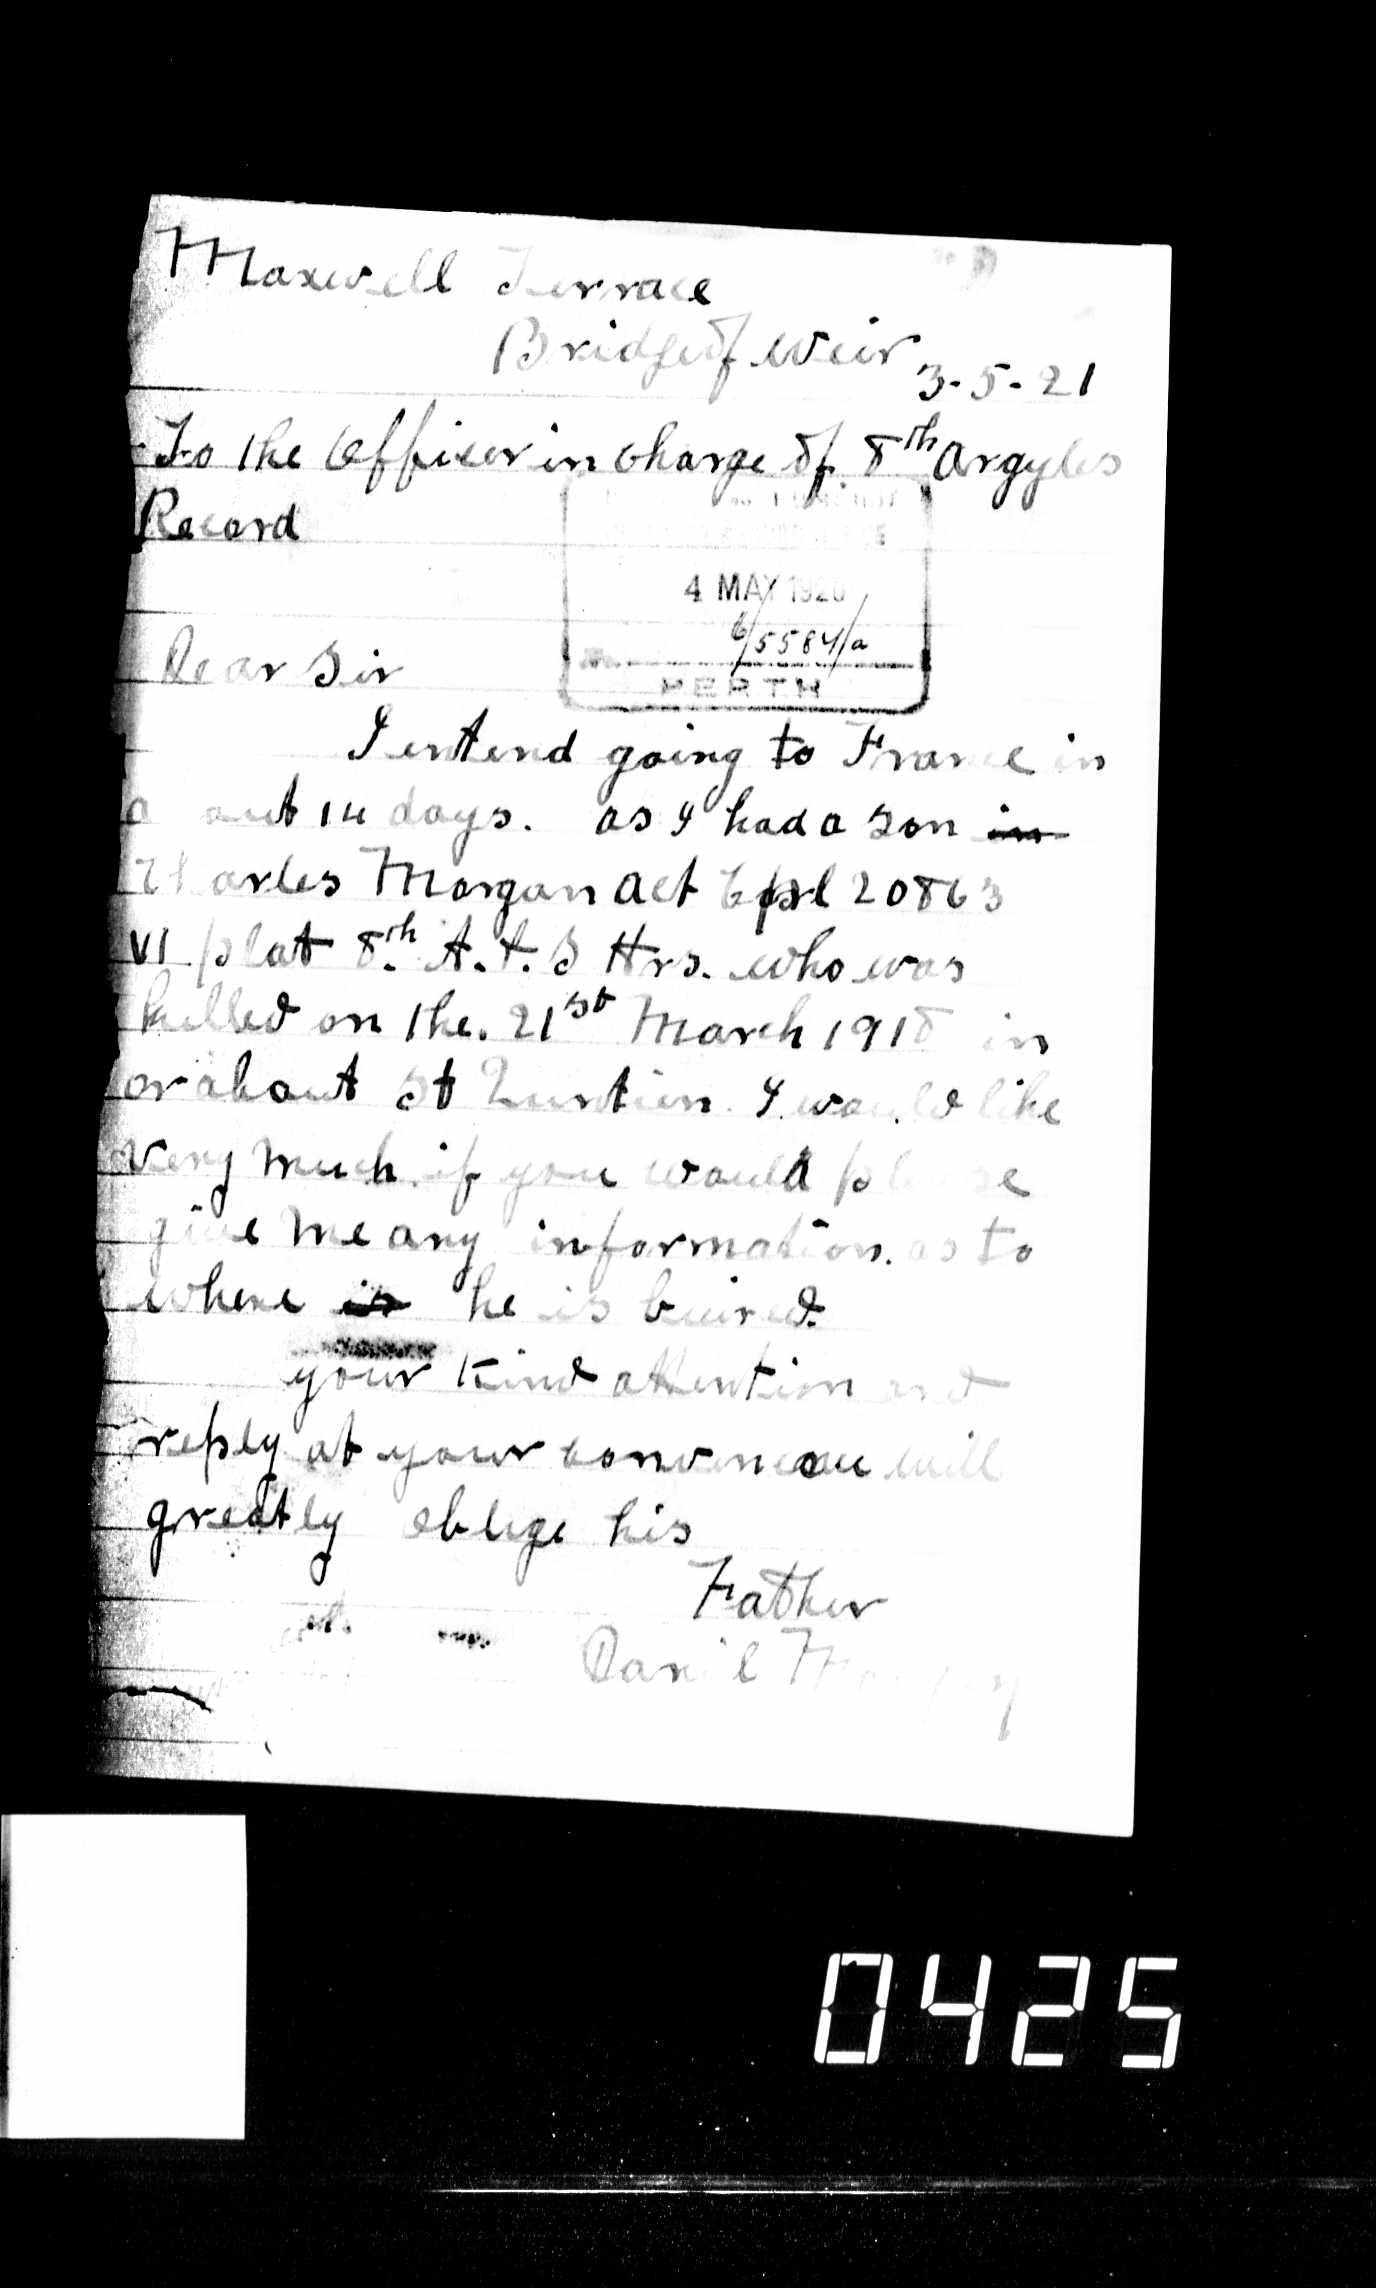 Maxwell Terrace
Bridge of Weir
3-5-21
To the Officer in Charge of 8th Argyles
Record
4 MAY 1920
6/5584/a
PERTH
Dear Sir
I entend going to France in
about 14 days. as I had a son in
Charles Morgan Act Cprl 20863
VI plat 8th A. & S Hrs. who was
killed on the. 21st March 1918 in
or about St Quintien. I would like
very much if you would please
give me any information as to
where is he is buired.
your kind attention and
reply at your will
greatly oblige his
Father
Daniel Morgan
0425